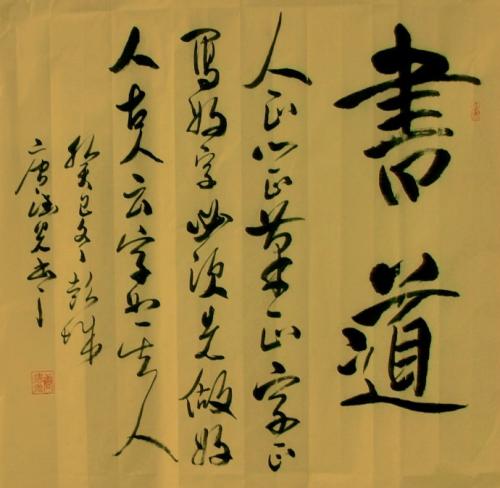 書道
人正心正筆正字正
写好字必须先做好
人古人云字如其人
於癸巳冬彭城